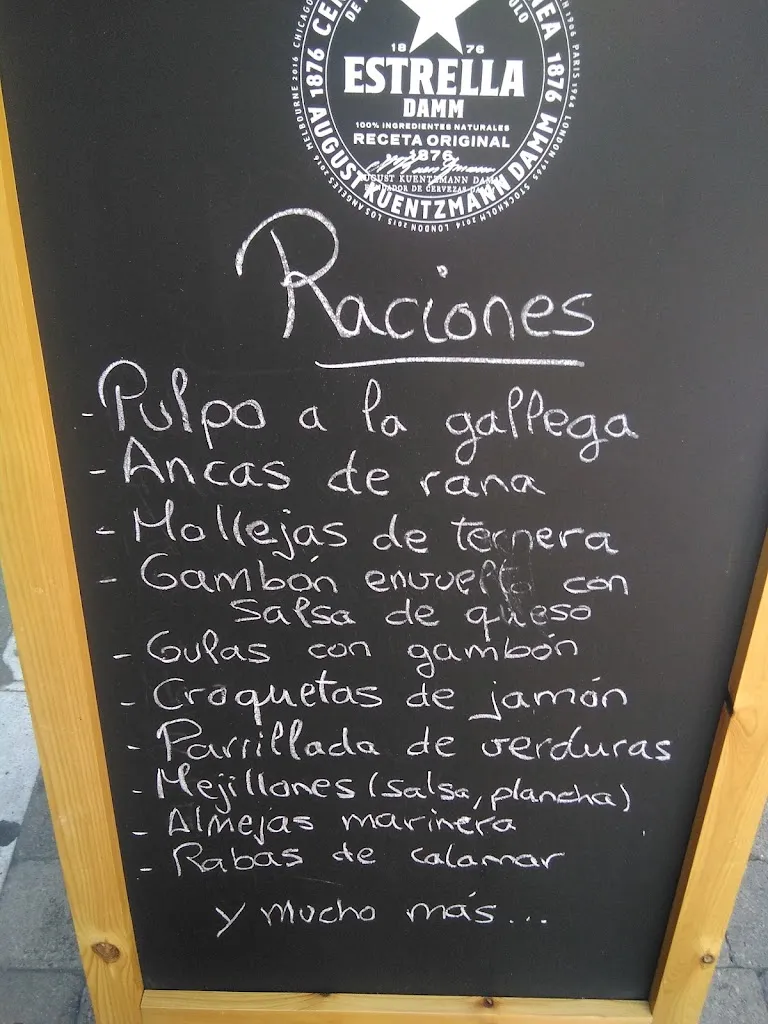 1876 CE
NEA 1876
MELBOURNE 2016 CHICAGO
PARIS 1964 LONDON 1965 STOCKHOLM 2014 LONDON 2015 LOS ANGELES 2016
18 76
ESTRELLA
DAMM
100% INGREDIENTES NATURALES
RECETA ORIGINAL
1876
AUGUST KUENTZMANN DAMM
FUNDADOR DE CERVEZAS DAMM
AUGUST KUENTZMANN DAMM
Raciones
- Pulpo a la gallega
- Ancas de rana
- Mollejas de ternera
- Gambón envuelto con
salsa de queso
- Gulas con gambón
- Croquetas de jamón
- Parrillada de verduras
- Mejillones (salsa, plancha)
- Almejas marinera
- Rabas de calamar
y mucho más...